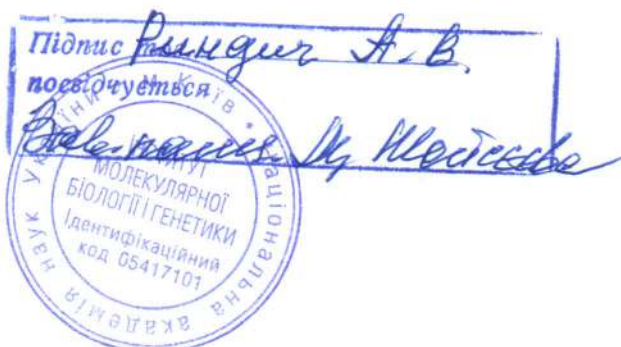 Підпис Риндич А. В.
посвідчується
ІНСТИТУТ
МОЛЕКУЛЯРНОЇ
БІОЛОГІЇ І ГЕНЕТИКИ
Ідентифікаційний
код 05417101
Національна академія наук України м. Київ